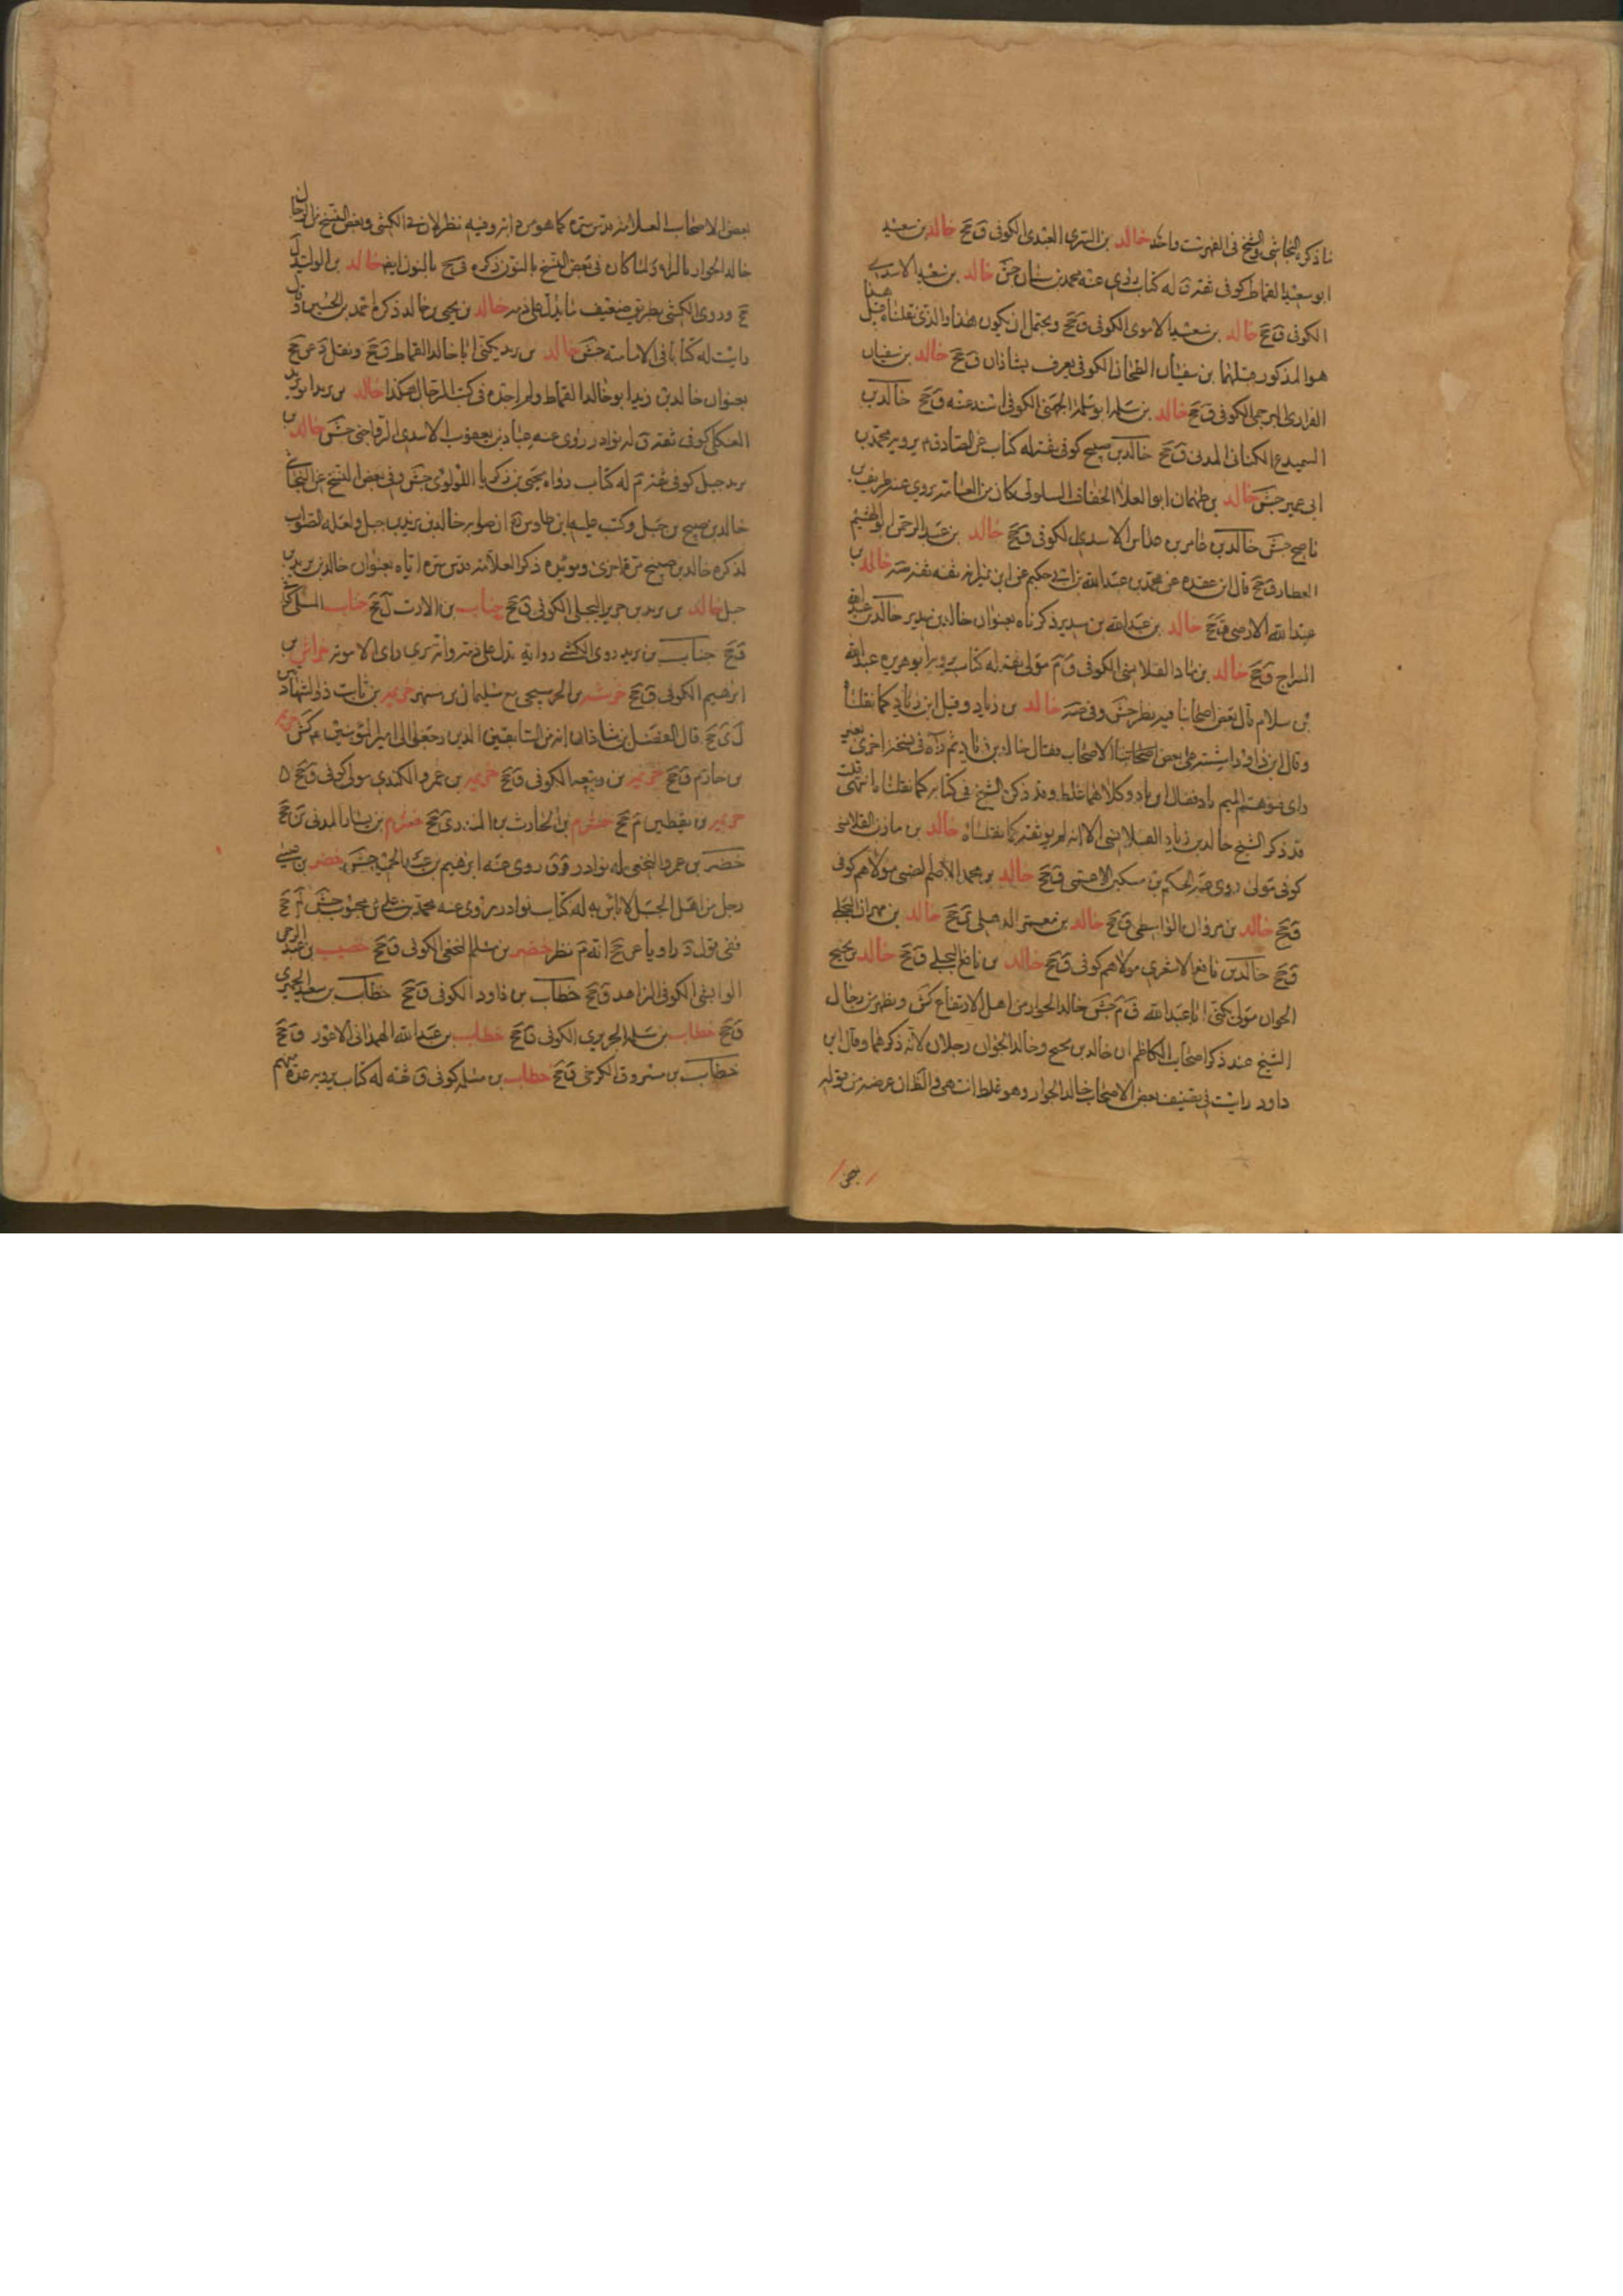 ما ذكره النجاشي والشيخ في الفهرست واحد خالد بن السري العبدي الكوفي ق جخ خالد بن سعيد
ابو سعيد القماط كوفي ثقة ق له كتاب روى عنه محمد بن سنان جش خالد بن سعيد الاسدي
الكوفي ق جخ خالد بن سعيد الاموي الكوفي ق جخ ويحتمل ان يكون هذا والذي نقلناه قبل هذا
هو المذكور قبلهما بن سفيان الطحان الكوفي يعرف بشاذان ق جخ خالد بن سفيان
الفزاري البرجمي الكوفي ق جخ خالد بن سلمة ابو سلمة الجهني الكوفي اسند عنه ق جخ خالد بن
السميدع الكناني المدني ق جخ خالد بن صبيح كوفي ثقة له كتاب عن الصادق م يرويه محمد بن
ابي عمير جش خالد بن طهمان ابو العلا الخفاف السلولي كان من العامة روى عنه ظريف بن
ناصح جش خالد بن عامر بن عداس الاسدي الكوفي ق جخ خالد بن عبد الرحمن ابو الهيثم
العطار ق جخ قال ابن عقدة عن محمد بن عبد الله بن ابي حكيم عن ابن نمير انه ثقة ثقة صه خالد بن
عبد الله الارمني ق جخ خالد بن عبد الله بن سدير ذكرناه بعنوان خالد بن سدير خالد بن عبد الله
السراج ق جخ خالد بن ماد القلانسي الكوفي ق م مولى ثقة له كتاب يرويه ابو هريرة عبد الله
بن سلام قال بعض اصحابنا فيه نظر جش وفي صه خالد بن زياد وقيل ابن باد كما نقلنا
وقال ابن داود واشتبه على بعض اصحابنا الاصحاب فقال خالد بن زياد ثم رآه في نسخة اخرى بغير
داى فتوهم الميم باد فقال ابن باد وكلاهما غلط وقد ذكره الشيخ في كتابه كما نقلنا انتهى قلت
قد ذكر الشيخ خالد بن زياد القلانسي الا انه لم يوثقه كما نقلناه خالد بن مازن القلانسي
كوفي مولى روى عنه الحكم بن مسكين الاعشى ق جخ خالد بن محمد الاصم الضبي مولاهم كوفي
ق جخ خالد بن مروان الواسطي ق جخ خالد بن معمر الدهلي ى جخ خالد بن مهران البجلي
ق جخ خالد بن نافع الاشعري مولاهم كوفي ق جخ خالد بن نافع البجلي ق جخ خالد بن نجيح
الجوان مولى يكنى ابا عبد الله ق م جش خالد الجوار من اهل الارتفاع كش ويظهر من رجال
الشيخ عند ذكر اصحاب الكاظم ان خالد بن نجيح وخالد الجوان رجلان لانه ذكرهما وقال ابن
داود رايت في تصنيف بعض الاصحاب خالد الجوار وهو غلط انتهى والظان غرضه من قوله
بعض
بعض الاصحاب العلامة قدس سره كما هو من دابه وفيه نظر لان في الكشي وبعض النسخ من الرجال
خالد الجوار بالراء ولما كان في بعض النسخ بالنون ذكره ق جخ بالنون ايضا خالد بن الوليد ل
جخ وروى الكشي بطريق ضعيف ما يدل على ذمه خالد بن يحيى بن خالد ذكره احمد بن الحسين وقال
رايت له كتابا في الامامة جش خالد بن يزيد يكنى ابا خالد القماط ق جخ ونقل د عن جخ
بعنوان خالد بن زيد ابو خالد القماط ولم اجده في كتب الرجال هكذا خالد بن يزيد ابو يزيد
العكلي كوفي ثقة ق له نوادر روى عنه عباد بن يعقوب الاسدي الرواجني جش خالد بن
يزيد جبل كوفي ثقة م له كتاب رواه يحيى بن زكريا اللؤلؤي جش وفي بعض النسخ عن النجاشي
خالد بن صبيح بن جبل وكتب عليه ابن طاوس ره ان صوابه خالد بن يزيد بن جبل ولعله الصواب
لذكره خالد بن صبيح مرة اخرى ويؤيده ذكر العلامة قدس سره اياه بعنوان خالد بن يزيد بن
جبل خالد بن يزيد بن جرير البجلي الكوفي ق جخ خباب بن الارت ل جخ خباب السلمي
ق جخ خباب بن يزيد روى الكشي رواية تدل على ذمه وانه يرى راى الاموية خراش بن
ابرهيم الكوفي ق جخ خرشة بن الحر سيجيء مع سليمان بن مسهر خزيمة بن ثابت ذو الشهادتين
ل ى جخ قال الفضل بن شاذان انه من السابقين الذين رجعوا الى امير المؤمنين م كش خزيمة
بن حازم ق جخ خزيمة بن ربيعة الكوفي ق جخ خزيمة بن عمرو الكندي مولى كوفي ق جخ
خزيمة بن يقطين م جخ خشرم بن الحارث بن المنذر ى جخ خشرم بن يسار المدني ين جخ
خضر بن عمرو النخعي له نوادر ق روى عنه ابرهيم بن عبد الحميد جش خضر بن عيسى
رجل من اهل الجبل لا باس به له كتاب نوادر روى عنه محمد بن علي بن محبوب جش لم جخ
ففي قول د راويا عن جخ انه م نظر خضر بن مسلم النخعي الكوفي ق جخ خصيب بن عبد الرحمن
الوابشي الكوفي الزاهد ق جخ خطاب بن داود الكوفي ق جخ خطاب بن سعيد الحميري
ق جخ خطاب بن سلمة الجريري الكوفي ق جخ خطاب بن عبد الله الهمداني الاعور ق جخ
خطاب بن مسروق الكرخي ق جخ خطاب بن مسلمة كوفي ق ثقة له كتاب يرويه عدة منهم